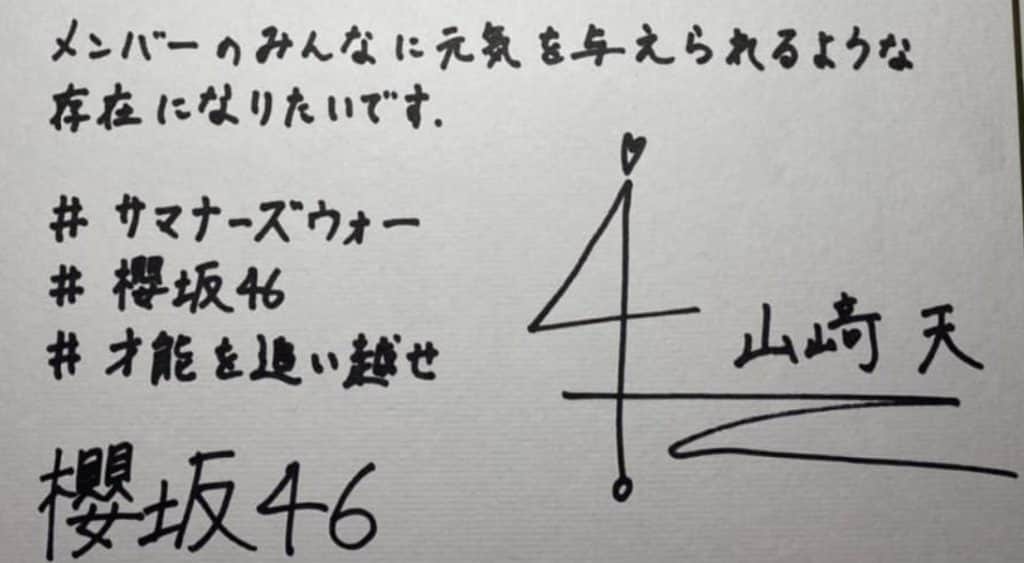 メンバーのみんなに元気を与えられるような
存在になりたいです.
# サマナーズウォー
# 櫻坂46
# 才能を追い越せ
山﨑 天
櫻坂46